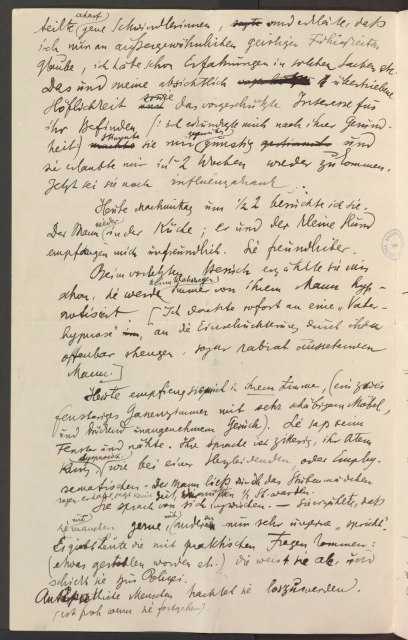 teilte gene Schwindlerinnen, und erklärte, daß
ich nur an außergewöhnlichen geistigen Fähigkeiten
glaube, ich hätte schon Erfahrungen in solchen Sachen etc.
Das und meine absichtlich übertriebene
Höflichkeit sowie das vorgeschützte Interesse für
ihr Befinden (: ich erkundigte mich nach ihrer Gesund-
heit) sie mir günstig und
sie erlaubte mir in 2 Wochen wieder zu kommen.
Jetzt sei sie noch influenzakrank
Heute Nachmittag um ½2 besuchte ich sie.
Der Mann wieder in der Küche; er und der kleine Hund
empfangen mich unfreundlich. Sie freundlicher.
Beim vorletzten Besuch erzählte sie mir
schon, sie werde immer von ihrem Mann hyp-
notisiert [Ich dachte sofort an eine „Vater-
hypnose", an die Einschüchterung durch ihren
offenbar strengen, sogar rabiat aussehenden
Mann.]
Heute empfieng sie mich in ihrem Zimmer, (ein
fenstriges Gassenzimmer mit sehr schäbigem Möbel,
und drückend unangenehmem Geruch). Sie saß beim
Fenster und nähte. Ihre Sprache ist, ihr Atem
kurz, (wie bei einer Herzleidenden, oder Emphy-
sematischen. Der Mann ließ durch das Stubenmädchen
sagen, er habe jetzt keine Zeit, ich mußte ¼ St. warten.
Sie sprach von sich inzwischen. — Sie erzählte, daß
sie mit manchen gerne, mit anderen nur sehr ungerne „spricht".
Es gibt Leute die mit praktischen Fragen kommen:
(etwas gestohlen worden etc.) die weist sie ab und
schickt sie zur Polizei.
Antipathische Menschen trachtet sie loszuwerden.
(ist froh wenn sie fortgehen).